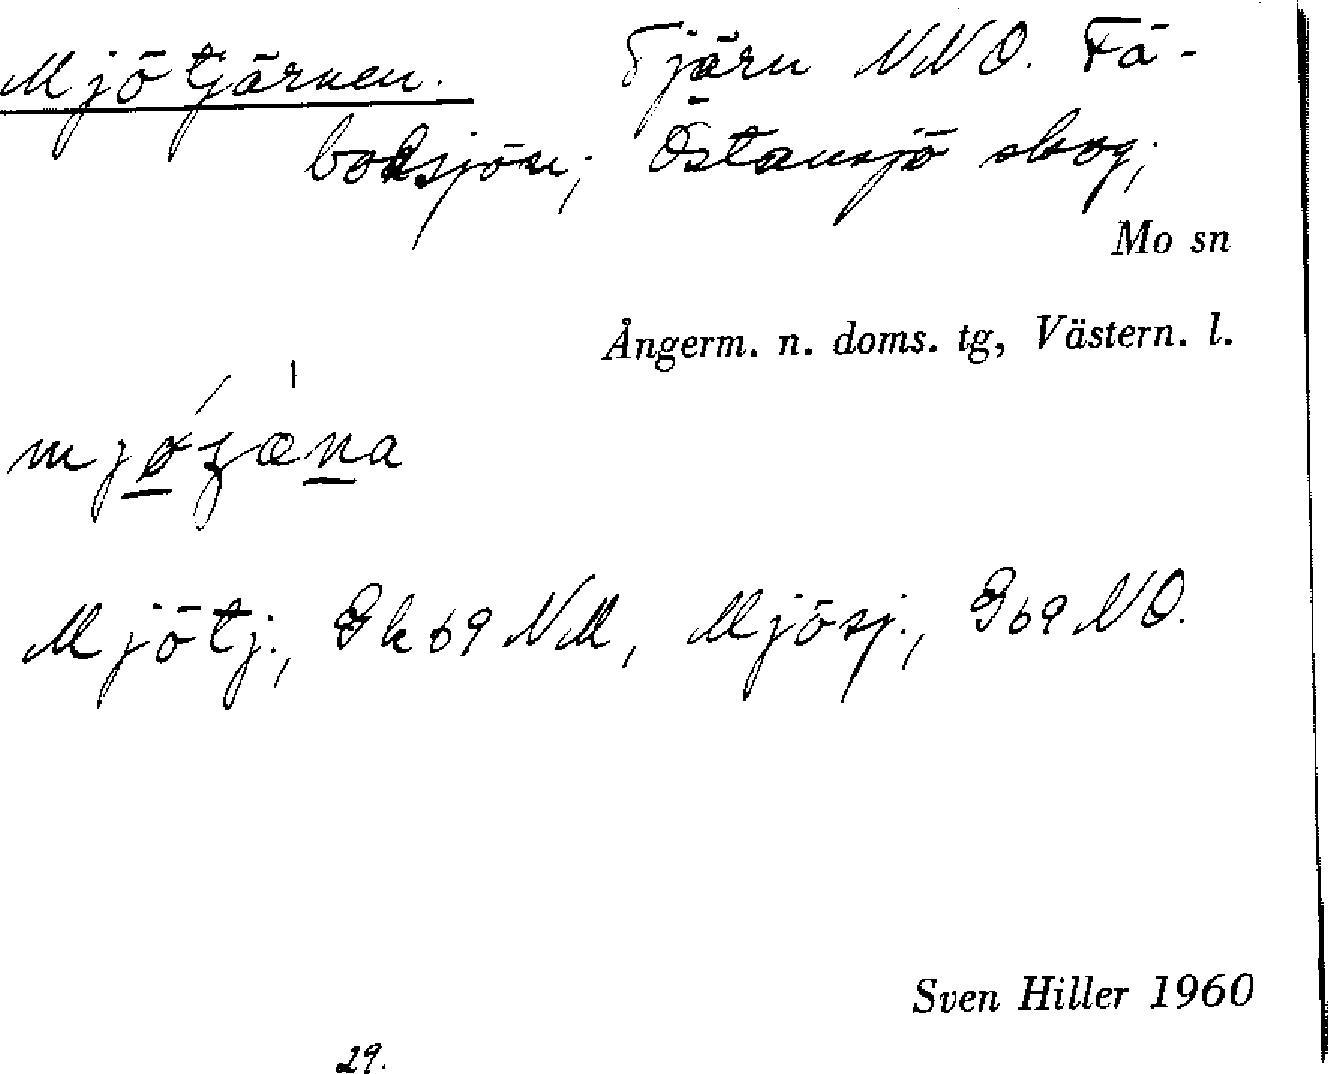 Mjötjärnen. Tjärn NNO. Fä-
bodsjön; Östansjö skog;
Mo sn
Ångerm. n. doms. tg, Västern. l.
Mjötj., Gk 69 NM, Mjösj., G 69 NO.
Sven Hiller 1960
29.